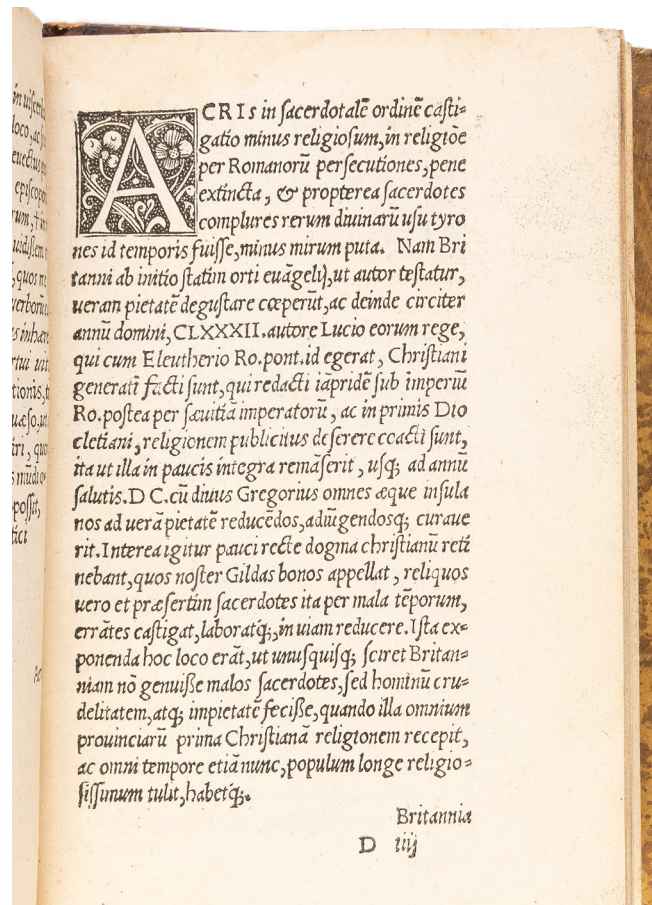 in uiscerib
loco, ac
euectus
episcopo
rum,
uidissem
, quos
uerborum
s inhære
rtui uit
tionis,
uæso, ut
iri, quo
s mũdi
possit,
tici
ACRIS in sacerdotalẽ ordinẽ casti-
gatio minus religiosum, in religiõe
per Romanorũ persecutiones, pene
extincta, & propterea sacerdotes
complures rerum diuinarũ usu tyro
nes id temporis fuisse, minus mirum puta. Nam Bri
tanni ab initio statim orti euãgelij, ut autor testatur,
ueram pietatẽ degustare cœperũt, ac deinde circiter
annũ domini, CLXXXII. autore Lucio eorum rege,
qui cum Eleutherio Ro. pont. id egerat, Christiani
generatĩ facti sunt, qui redacti iãpridẽ sub imperiũ
Ro. postea per sæuitiã imperatorũ, ac in primis Dio
cletiani, religionem publicitus deserere coacti sunt,
ita ut illa in paucis integra remãserit, usq; ad annũ
salutis. D C. cũ diuus Gregorius omnes æque insula
nos ad uerã pietatẽ reducẽdos, adiũgendosq; curaue
rit. Interea igitur pauci recte dogma christianũ reti
nebant, quos noster Gildas bonos appellat, reliquos
uero et præsertim sacerdotes ita per mala tẽporum,
errãtes castigat, laboratq́;, in uiam reducere. Ista ex-
ponenda hoc loco erãt, ut unusquisq; sciret Britan-
niam nõ genuisse malos sacerdotes, sed hominũ cru-
delitatem, atq; impietatẽ fecisse, quando illa omnium
prouinciarũ prima Christianã religionem recepit,
ac omni tempore etiã nunc, populum longe religio-
sissimum tulit, habetq́;.
Britannia
D iiij